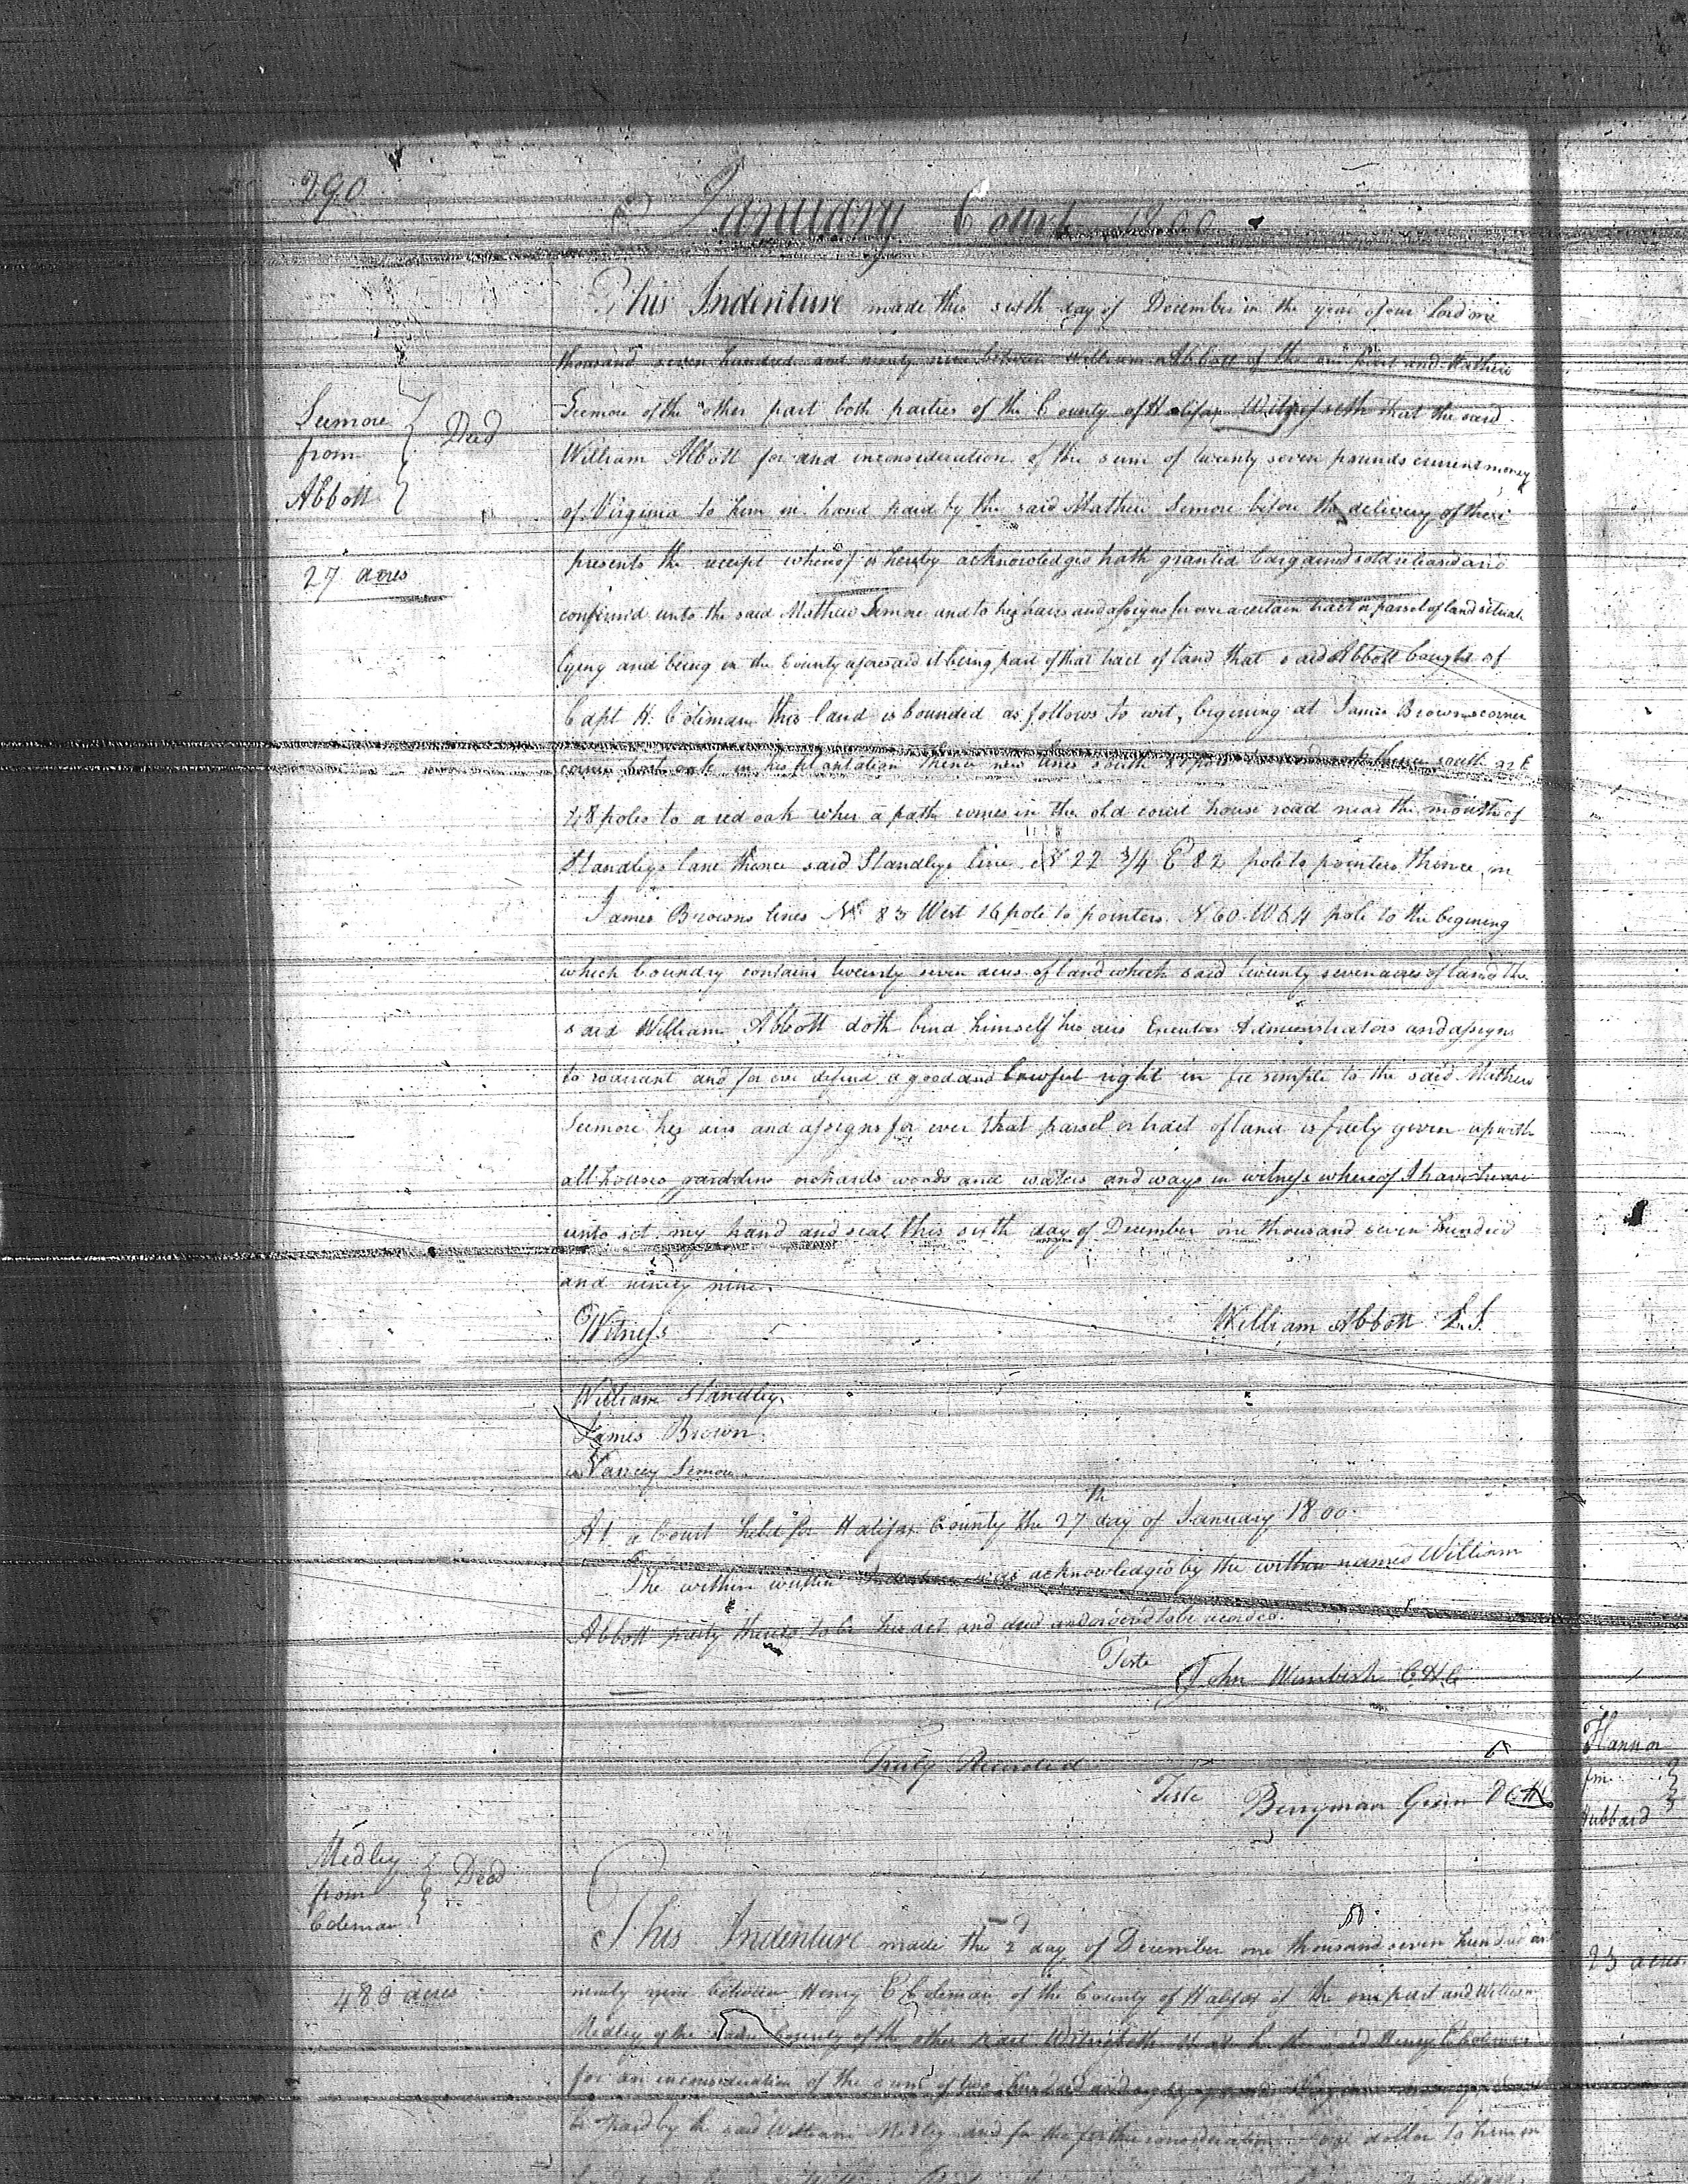 290
January Court 1800
This Indenture made this sixth day of December in the year of our Lord one
thousand seven hundred and ninety nine between William Abbott of the one part and Mathew
Seemore
from
Abbott
Deed
27 acres
Seemore of the other part both parties of the County of Halifax Witnesseth that the said
William Abbott for and inconsideration of the sum of twenty seven pounds current money
of Virginia to him in hand paid by the said Mathew Semore before the delivery of these
presents the receipt whereof is hereby acknowledged hath granted bargained sold released and
confirmd unto the said Mathew Semore and to his heirs and assigns for ever a certain tract or parsel of land situate
lying and being in the County aforesaid it being part of that tract of land that said Abbott bought of
Capt H: Coleman this land is bounded as follows to wit, begining at James Browns corner
corner post oak in his plantation thence new lines south 87 thence south 22 E
48 poles to a red oak wher a path comes in the old court house road near the mouth of
Standleys lane thence said Standleys line N 22 3/4 E 82 pole to pointers thence on
James Browns lines N 83 West 16 pole to pointers N 60 W 64 pole to the begining
which boundry contains twenty seven acres of land which said twenty seven acres of land the
said William Abbott doth bind himself his airs Executors Administrators and assigns
to warrant and for ever defend a good and lawful right in fee simple to the said Mathew
Seemore his airs and assigns for ever that parsel or tract of land is freely given up with
all houses garddins orchards woods and waters and ways in witness whereof I have here
unto set my hand and seal this sixth day of December one thousand seven hundred
and ninety nine.
Witness
William Abbott L.S.
William Standley
James Brown
Nancey Semore
At a Court held for Halifax County the 27th day of January 1800
The within written Indenture was acknowledged by the within named William
Abbott party thereto to be his act and deed and ordered to be recorded.
Teste
John Wimbish C H C
Truly Recorded
Teste Berryman Green D C H
Hannor
fm
Hubbard
23 acres
Medley
from
Coleman
Deed
488 acres
This Indenture made the 2d day of December one thousand seven hundred and
ninety nine between Henry E Coleman of the County of Halifax of the one part and William
Medley of the same County of the other part Witnesseth that he the said Henry E Coleman
for an inconsideration of the sum of two hundred and
to paid by the said William Medley and for the further consideration of one dollar to him in